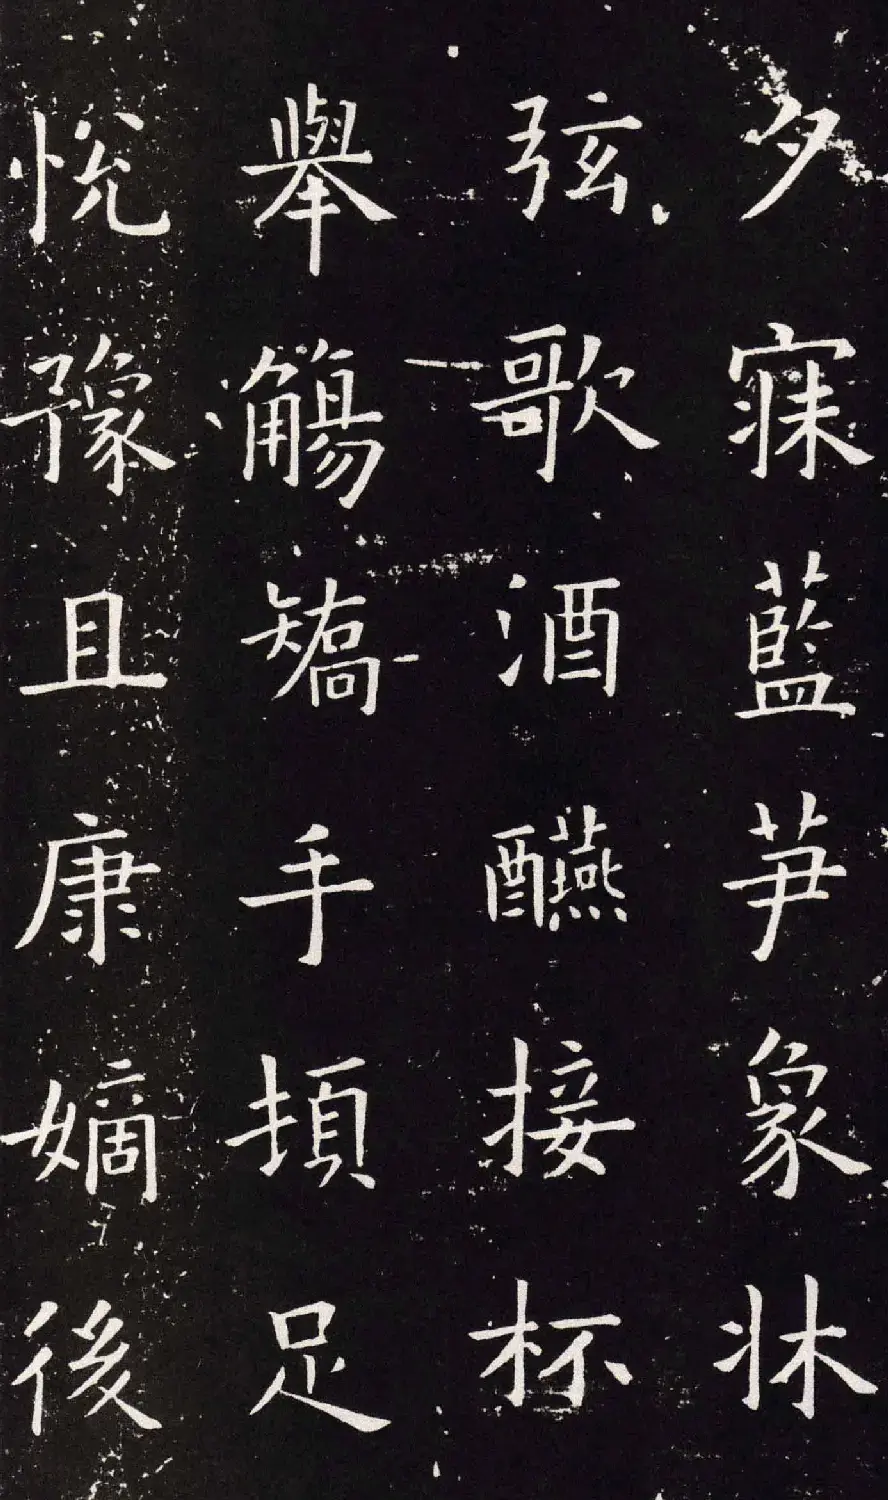 夕寐藍笋象牀
弦歌酒醼接杯
舉觴矯手頓足
悅豫且康嫡後